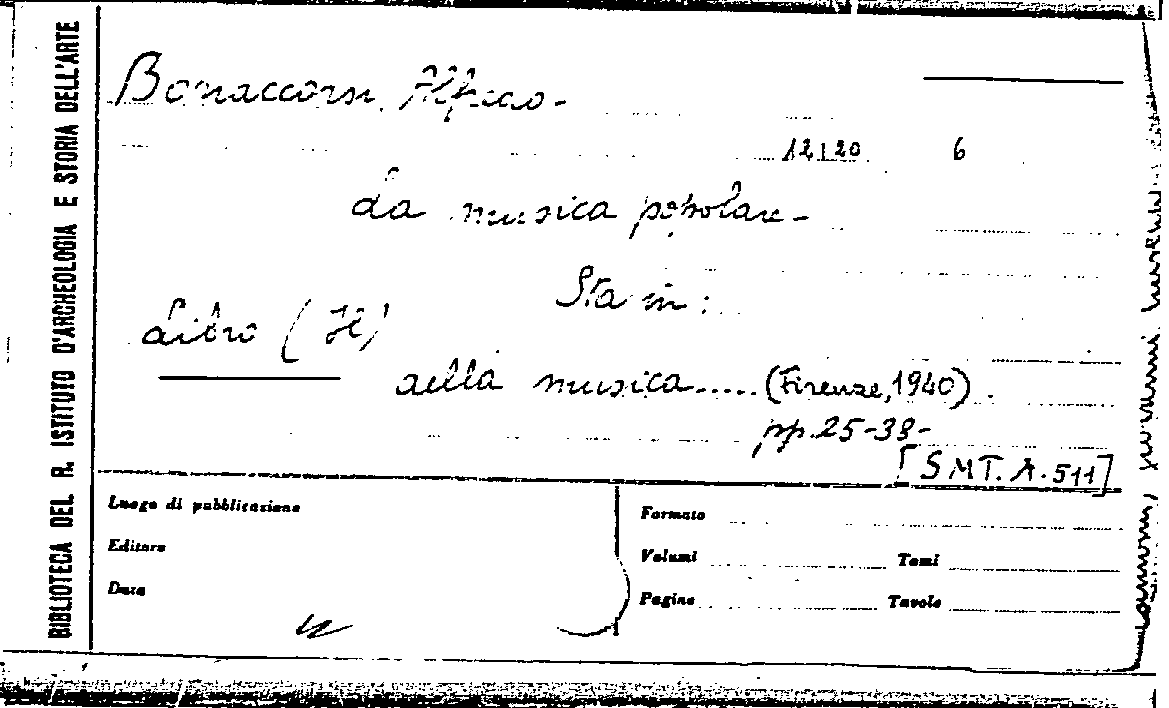 BIBLIOTECA DEL R. ISTITUTO D'ARCHEOLOGIA E STORIA DELL'ARTE
Bonaccorsi, Alfredo-
12120 6
La musica popolare-
Sta in:
Libro (Il)
della musica..... (Firenze, 1940).
pp. 25-38-
[SMT. A. 511]
Luogo di pubblicazione
Editore
Data
Formato
Volumi Tomi
Pagine Tavole